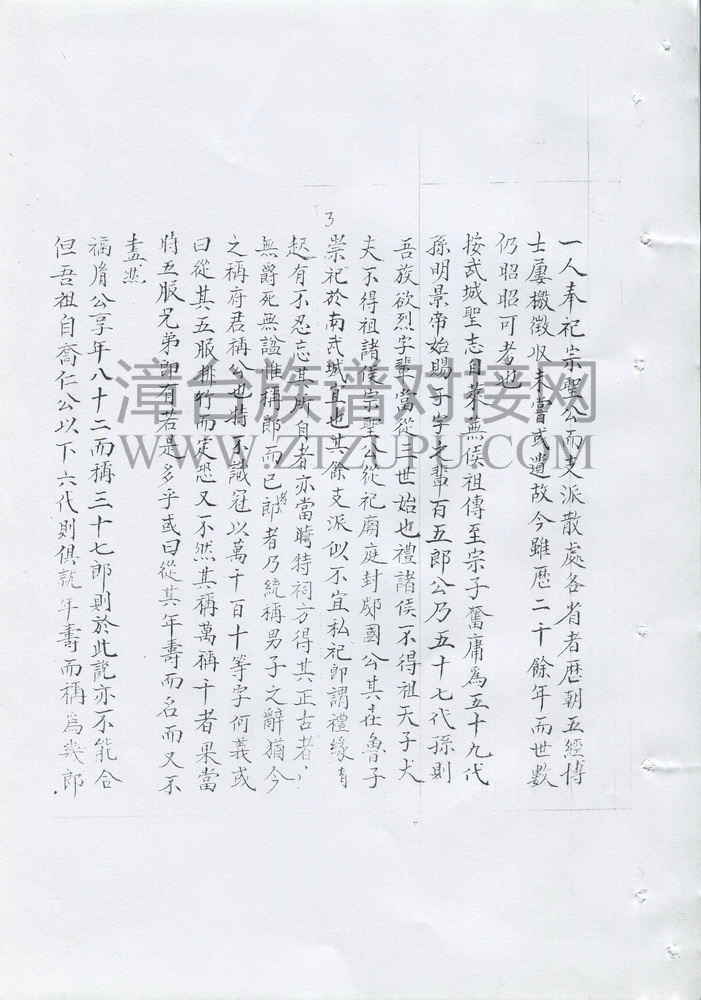 3
一人奉祀宗聖公而支派散處各省者歷朝五經博
士屢檄徵収未嘗或遺故今雖歷二千餘年而世數
仍昭昭可考也
按武城聖志自來無侯祖傳至宗子奮庸為五十九代
孫明景帝始賜予字之輩百五郎公乃五十七代孫則
吾族欲烈字輩當從三世始也禮諸侯不得祖天子大
夫不得祖諸侯宗聖公從祀廟庭封郕國公其在魯子
崇祀於南武城宜也其餘支派似不宜私祀即謂禮緣
起有不忍忘其所自者亦當時特祠方得其正古者
無爵死無謚惟稱郎而已郎者乃統稱男子之辭猶今
之稱府君稱公也特不識冠以萬千百十等字何義或
曰從其五服排行而定恐又不然其稱萬稱千者果當
時五服兄弟即有若是多乎或曰從其年壽而名而又不
盡然
福脩公享年八十二而稱三十七郎則於此說亦不能合
但吾祖自喬仁公以下六代則俱就年壽而稱為幾郎
漳台族谱对接网
WWW.ZTZUPU.COM